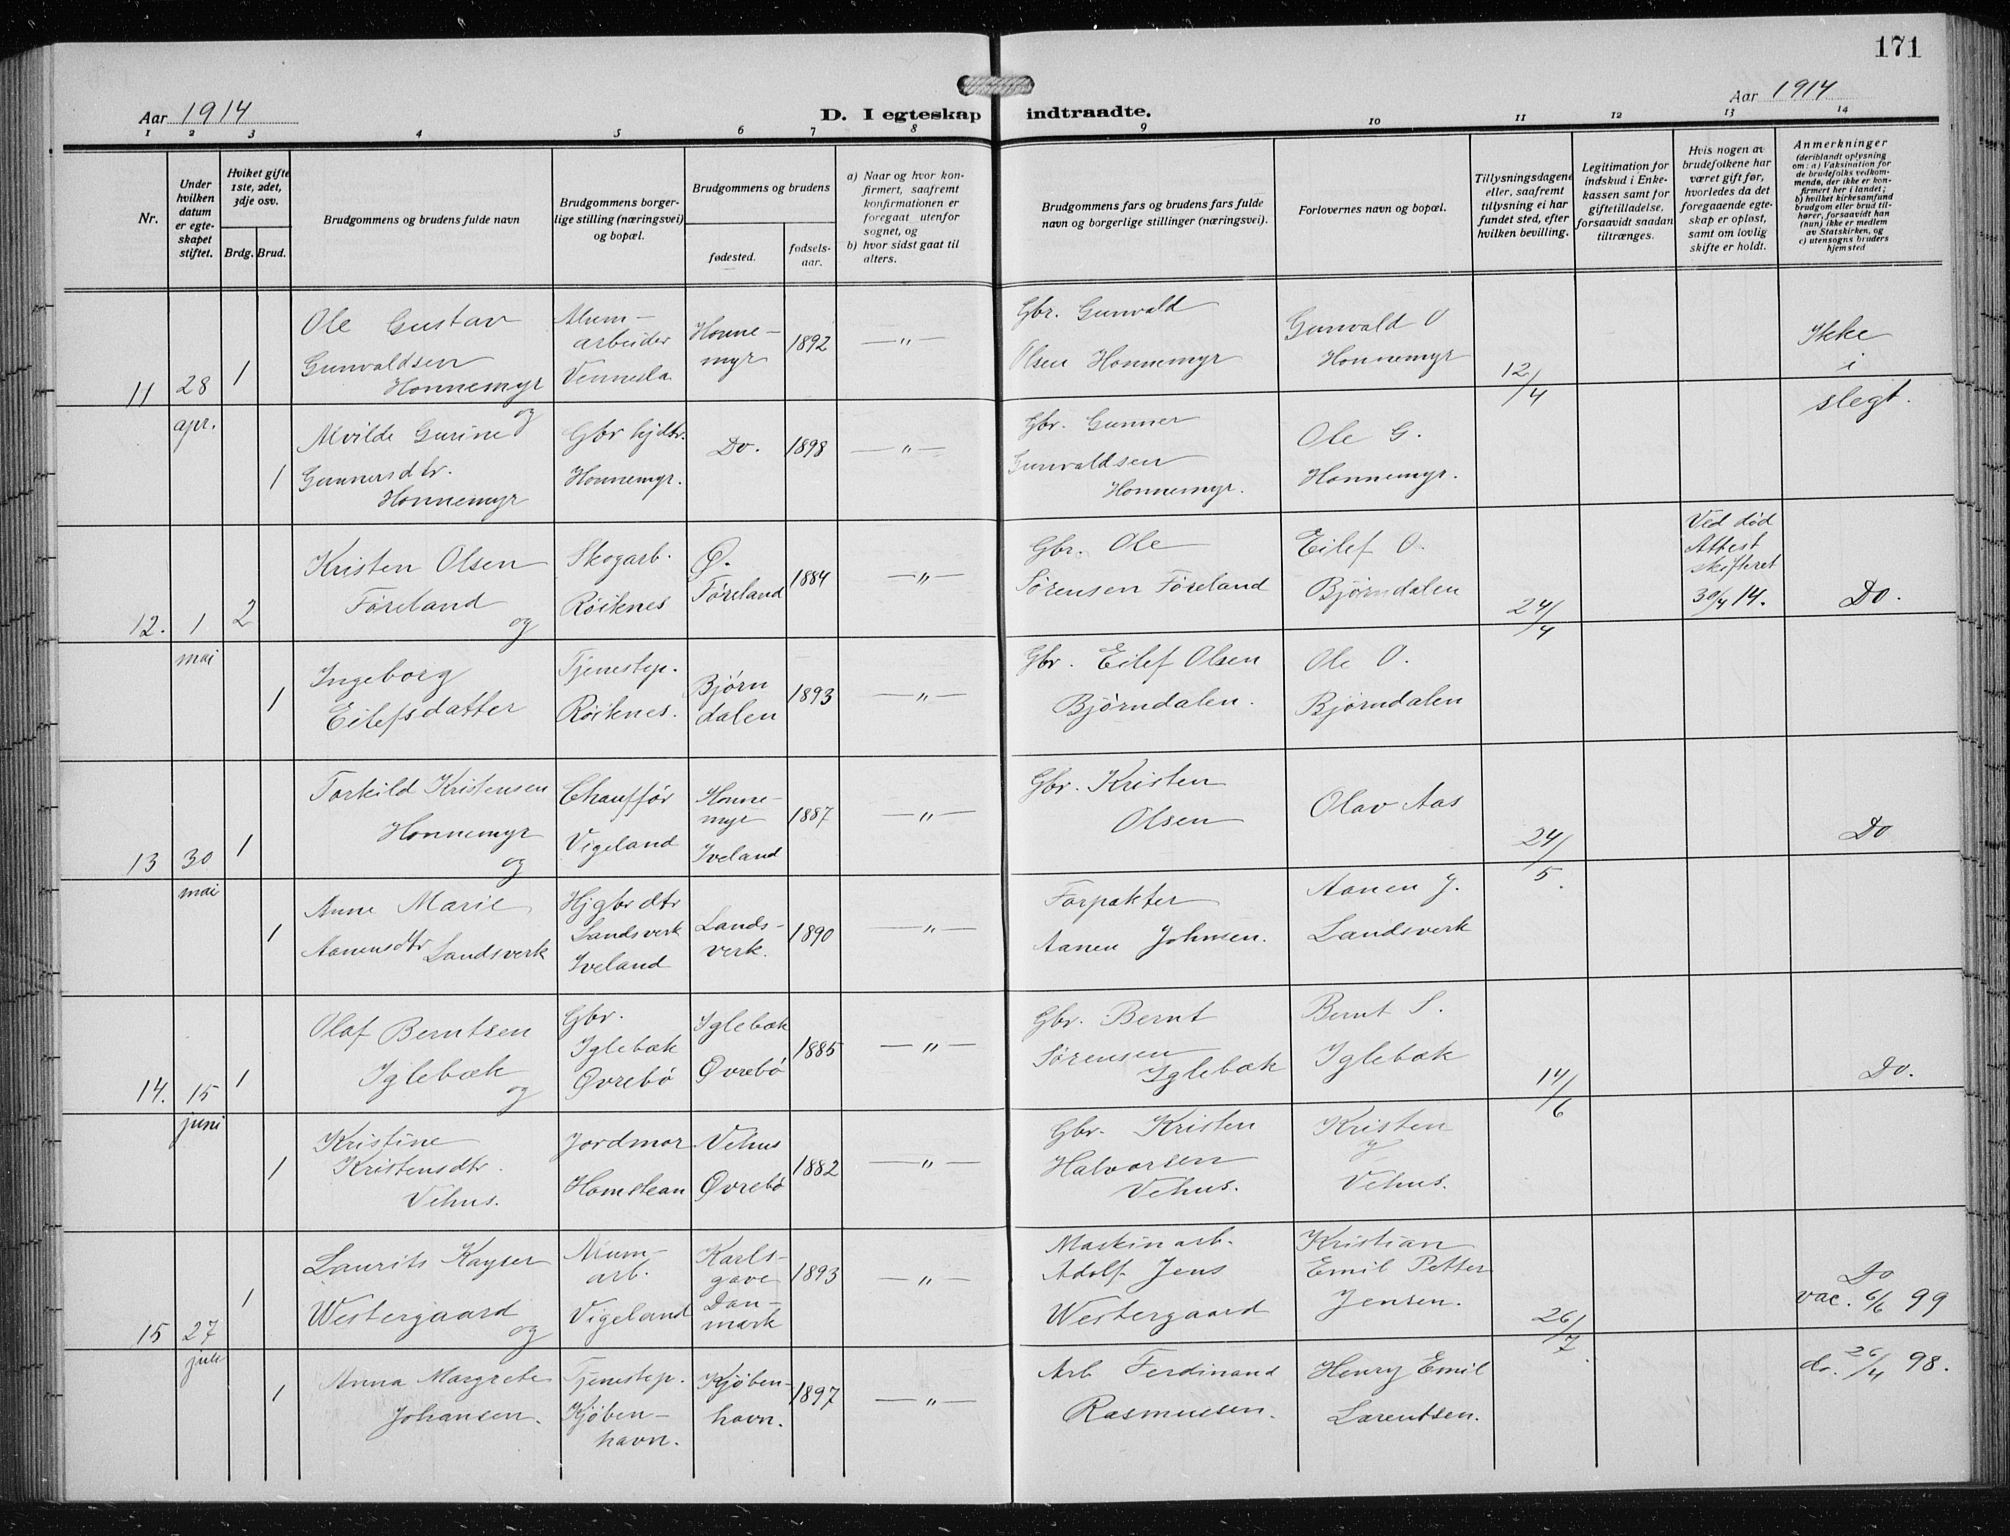 171
Aar 1914
D. I egteskap indtraadte.
Aar 1914
1 2 3 4 5 6 7 8 9 10 11 12 13 14
Nr.
Under hvilken datum er egteskapet stiftet.
Hviket gifte 1ste, 2det, 3dje osv.
Brdg. Brud.
Brudgommens og brudens fulde navn
Brudgommens borgerlige stilling (næringsvei) og bopæl.
Brudgommens og brudens
fødested.
fødselsaar.
a) Naar og hvor konfirmert, saafremt konfirmationen er foregaat utenfor sognet, og
b) hvor sidst gaat til alters.
Brudgommens fars og brudens fars fulde navn og borgerlige stillinger (næringsvei).
Forlovernes navn og bopæl.
Tillysningsdagene eller, saafremt tillysning ei har fundet sted, efter hvilken bevilling.
Legitimation for indskud i Enkekassen samt for giftetilladelse, forsaavidt saadan tiltrænges.
Hvis nogen av brudefolkene har været gift før, hvorledes da det foregaaende egteskap er opløst, samt om lovlig skifte er holdt.
Anmerkninger
(deriblandt oplysning om: a) Vaksination for de brudefolks vedkommende, der ikke er konfirmert her i landet; b) hvilket kirkesamfund brudgom eller brud tilhører, forsaavidt han (hun) ikke er medlem av Statskirken, og c) utensogns bruders hjemsted
11 28 apr. 1
Ole Gustav
Gunvaldsen
Honnemyr
og
Alum-
arbeider
Vennesla
Honne-
myr
1892
— " —
Gbr. Gunvald
Olsen Honnemyr
Gunvald O
Honnemyr
12/4
Ikke
i
slegt.
1
Alvilde Gurine
Gunnersdtr.
Honnemyr
Gbr hjdtr.
Honnemyr.
Do.
1898
— " —
Gbr. Gunner
Gunvaldsen
Honnemyr.
Ole G.
Honnemyr.
12. 1 mai 2
Kristen Olsen
Føreland
og
Skogarb.
Røiknes
Ø.
Føreland
1884
— " —
Gbr. Ole
Sørensen Føreland
Eilef O.
Bjørndalen
24/4
Ved død
Attest
skifteret
30/4 14.
Do.
1
Ingeborg
Eilefsdatter
Tjenestep.
Røiknes.
Bjørn
dalen
1893
— " —
Gbr. Eilef Olsen
Bjørndalen.
Ole O.
Bjørndalen
13 30 mai 1
Torkild Kristensen
Honnemyr
og
Chauffør
Vigeland
Honne-
myr
Iveland
1887
— " —
Gbr. Kristen
Olsen
Olav Aas
24/5.
Do
1
Anne Marie
Aanensdtr Landsverk
Hjgbrdtr
Landsverk
Iveland
Lands-
verk.
1890
— " —
Forpakter
Aanen Johnsen.
Aanen J.
Landsverk
14. 15 juni 1
Olaf Berntsen
Iglebæk
og
Gbr.
Iglebæk
Øvrebø
Iglebæk
Øvrebø
1885
— " —
Gbr. Bernt
Sørensen
Iglebæk
Bernt S.
Iglebæk
14/6
Do.
1
Kristine
Kristensdtr.
Vehus.
Jordmor
Homstean
Vehus
Øvrebø
1882
— " —
Gbr. Kristen
Halvorsen
Vehus.
Kristen
Vehus.
15 27 juli 1
Laurits Kayser
Westergaard
og
Alum-
arb.
Vigeland
Karls-
gave
Dan-
mark
1893
— " —
Maskinarb.
Adolf Jens
Westergaard
Kristian
Emil Petter
Jensen.
26/7.
Do
vac. 6/6 99
1
Anna Margrete
Johansen.
Tjenestep.
Kjøben-
havn.
Kjøben-
havn.
1897
— " —
Arb. Ferdinand
Rasmussen.
Henry Emil
Larentsen.
do. 26/4 98.